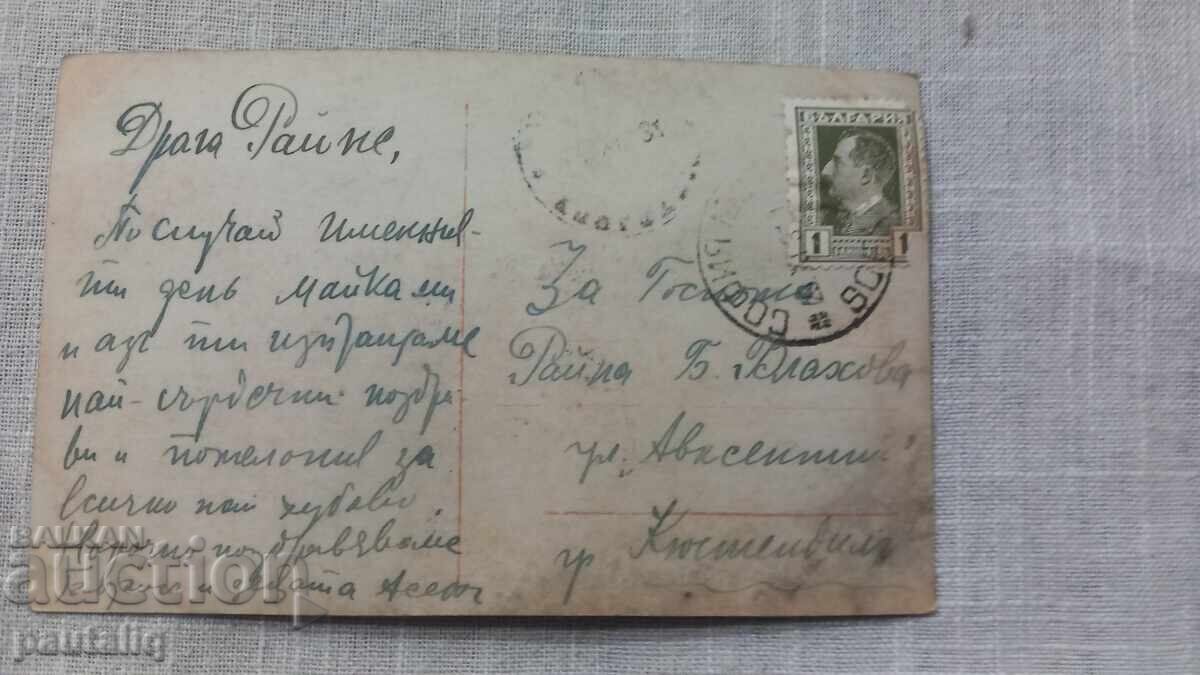 Драга Райне,
По случай именния-
ти день майка ми
и азъ ти изпращаме
най-сърдечни поздра-
ви и пожелания за
всичко най хубаво.
поздравяваме
и Асенъ
За Госпожа
Райна Б. Влахова
ул. "Авксентий"
гр Кюстендилъ
БЪЛГАРИЯ
1 1
СОФИЯ SO
BALKAN
auction
pautalig